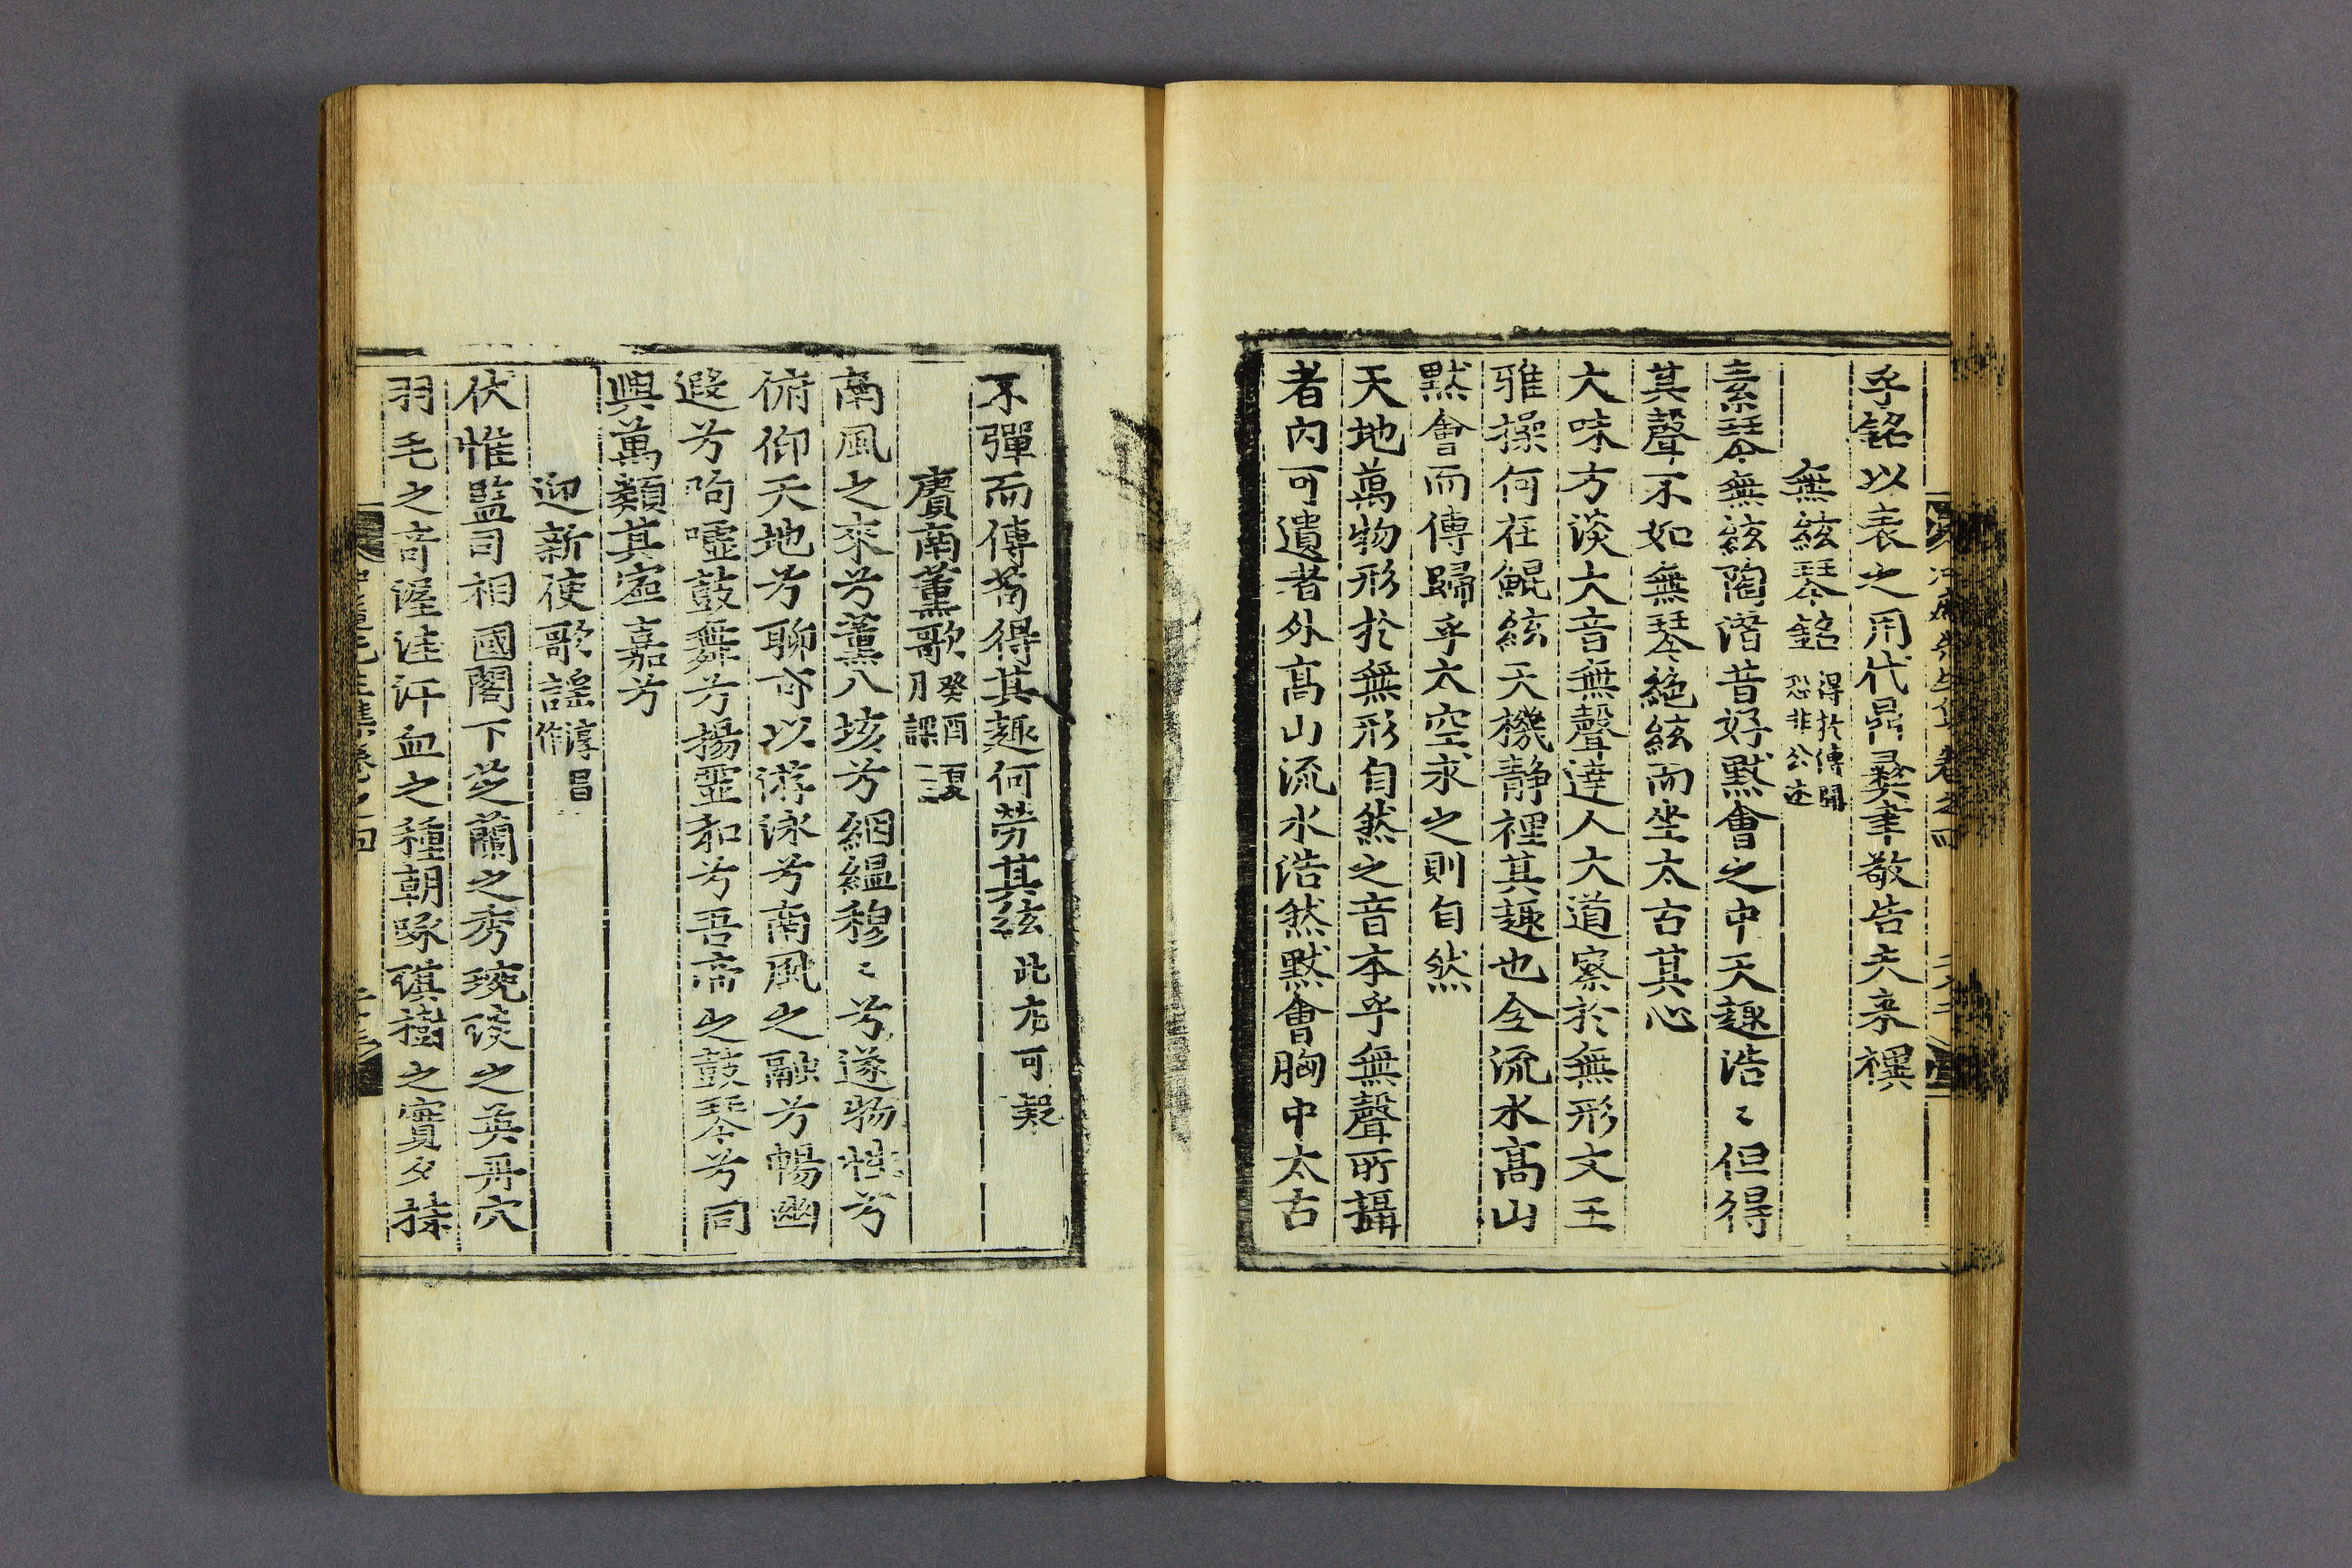 乎銘以表之用代鼎彝聿敬告夫來禩
無絃琴銘 得於傳聞恐非公述
素琴無絃陶潛昔好默會之中天趣浩〻但得
其聲不如無琴絶絃而坐太古其心
大味方淡大音無聲達人大道察於無形文王
雅操何在鯤絃天機静裡其趣也全流水高山
默會而傳歸乎太空求之則自然
天地萬物形於無形自然之音本乎無聲所攝
者内可遺者外高山流水浩然默會胸中太古
不彈而傳苟得其趣何勞其絃 此亦可疑
賡南薰歌 癸酉夏月課
南風之來兮薰八垓兮絪緼穆〻兮遂物性兮
俯仰天地兮聊可以游泳兮南風之融兮暢幽
遐兮呴噓鼓舞兮揚靈和兮吾帝之鼓琴兮同
與萬類其寍嘉兮
迎新使歌謠 淳昌作
伏惟監司相國閣下芝蘭之秀琬琰之英丹穴
羽毛之奇渥洼汗血之種朝啄琪樹之實夕